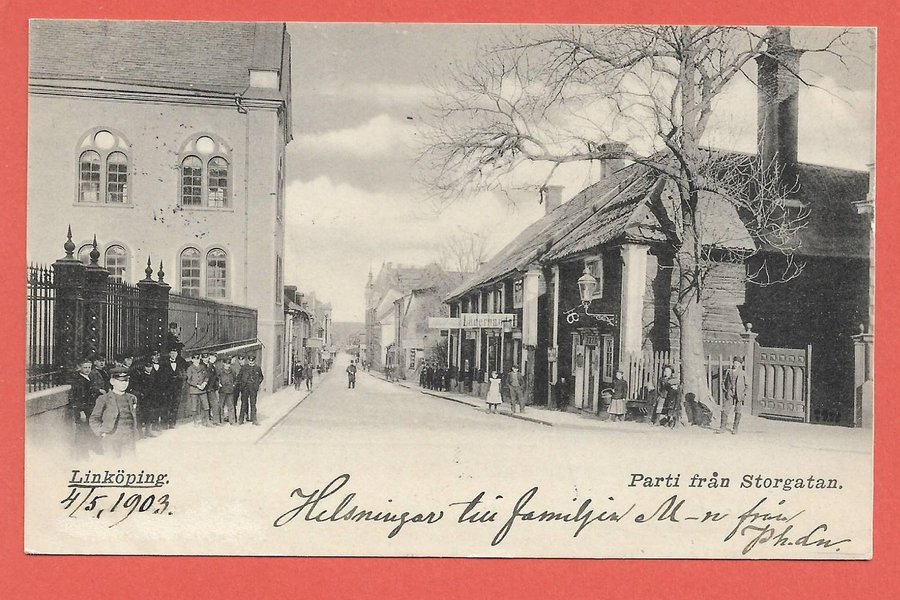 Läderhandel
Linköping.
Parti från Storgatan.
4/5, 1903.
Helsningar till familjen M-n från
Ph. Ln.